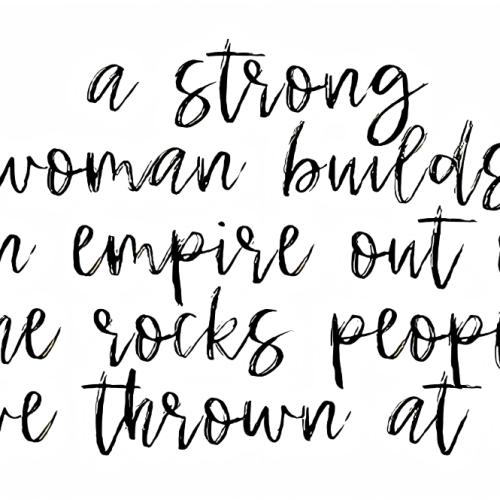 a strong
woman builds
n empire out
he rocks peopl
ve thrown at